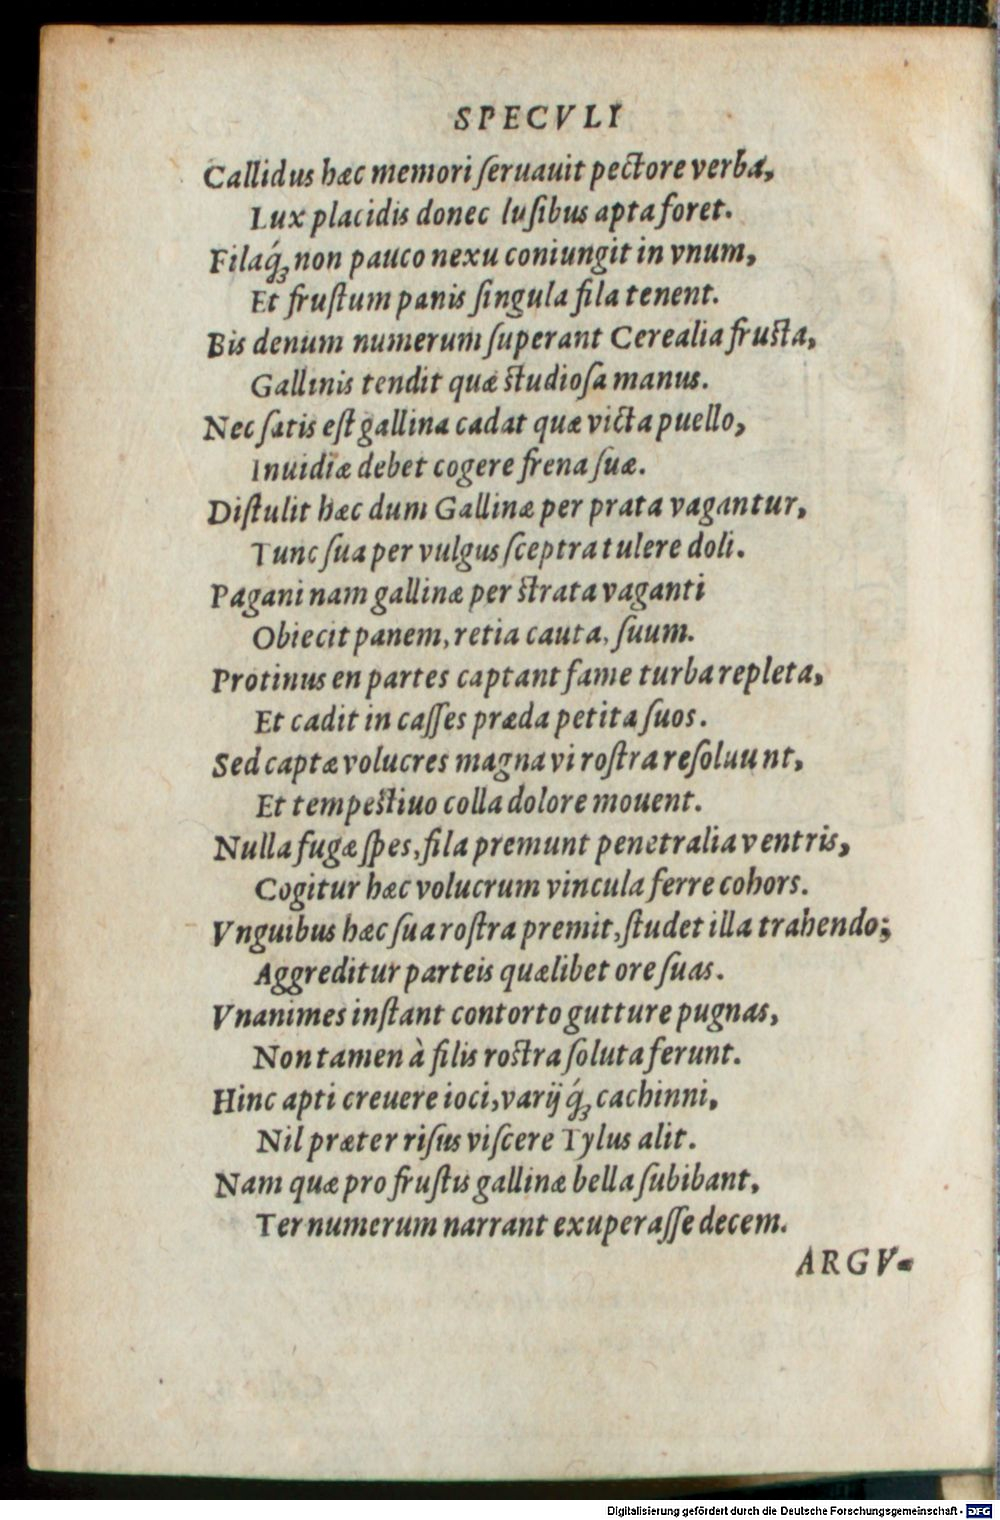 SPECVLI
Callidus hæc memori ſeruauit pectore verba,
Lux placidis donec luſibus apta foret.
Filaq́ꝫ non pauco nexu coniungit in vnum,
Et fruſtum panis ſingula fila tenent.
Bis denum numerum ſuperant Cerealia fruſta,
Gallinis tendit quæ ſtudioſa manus.
Nec ſatis eſt gallina cadat quæ victa puello,
Inuidiæ debet cogere frena ſuæ.
Diſtulit hæc dum Gallinæ per prata vagantur,
Tunc ſua per vulgus ſceptra tulere doli.
Pagani nam gallinæ per ſtrata vaganti
Obiecit panem, retia cauta, ſuum.
Protinus en partes captant fame turba repleta,
Et cadit in caſſes præda petita ſuos.
Sed captæ volucres magna vi roſtra reſoluunt,
Et tempeſtiuo colla dolore mouent.
Nulla fugæ ſpes, fila premunt penetralia ventris,
Cogitur hæc volucrum vincula ferre cohors.
Vnguibus hæc ſua roſtra premit, ſtudet illa trahendo;
Aggreditur parteis quælibet ore ſuas.
Vnanimes inſtant contorto gutture pugnas,
Non tamen à filis roſtra ſoluta ferunt.
Hinc apti creuere ioci, varij q́ꝫ cachinni,
Nil præter riſus viſcere Tylus alit.
Nam quæ pro fruſtis gallinæ bella ſubibant,
Ter numerum narrant exuperaſſe decem.
ARGV-
Digitalisierung gefördert durch die Deutsche Forschungsgemeinschaft - DFG